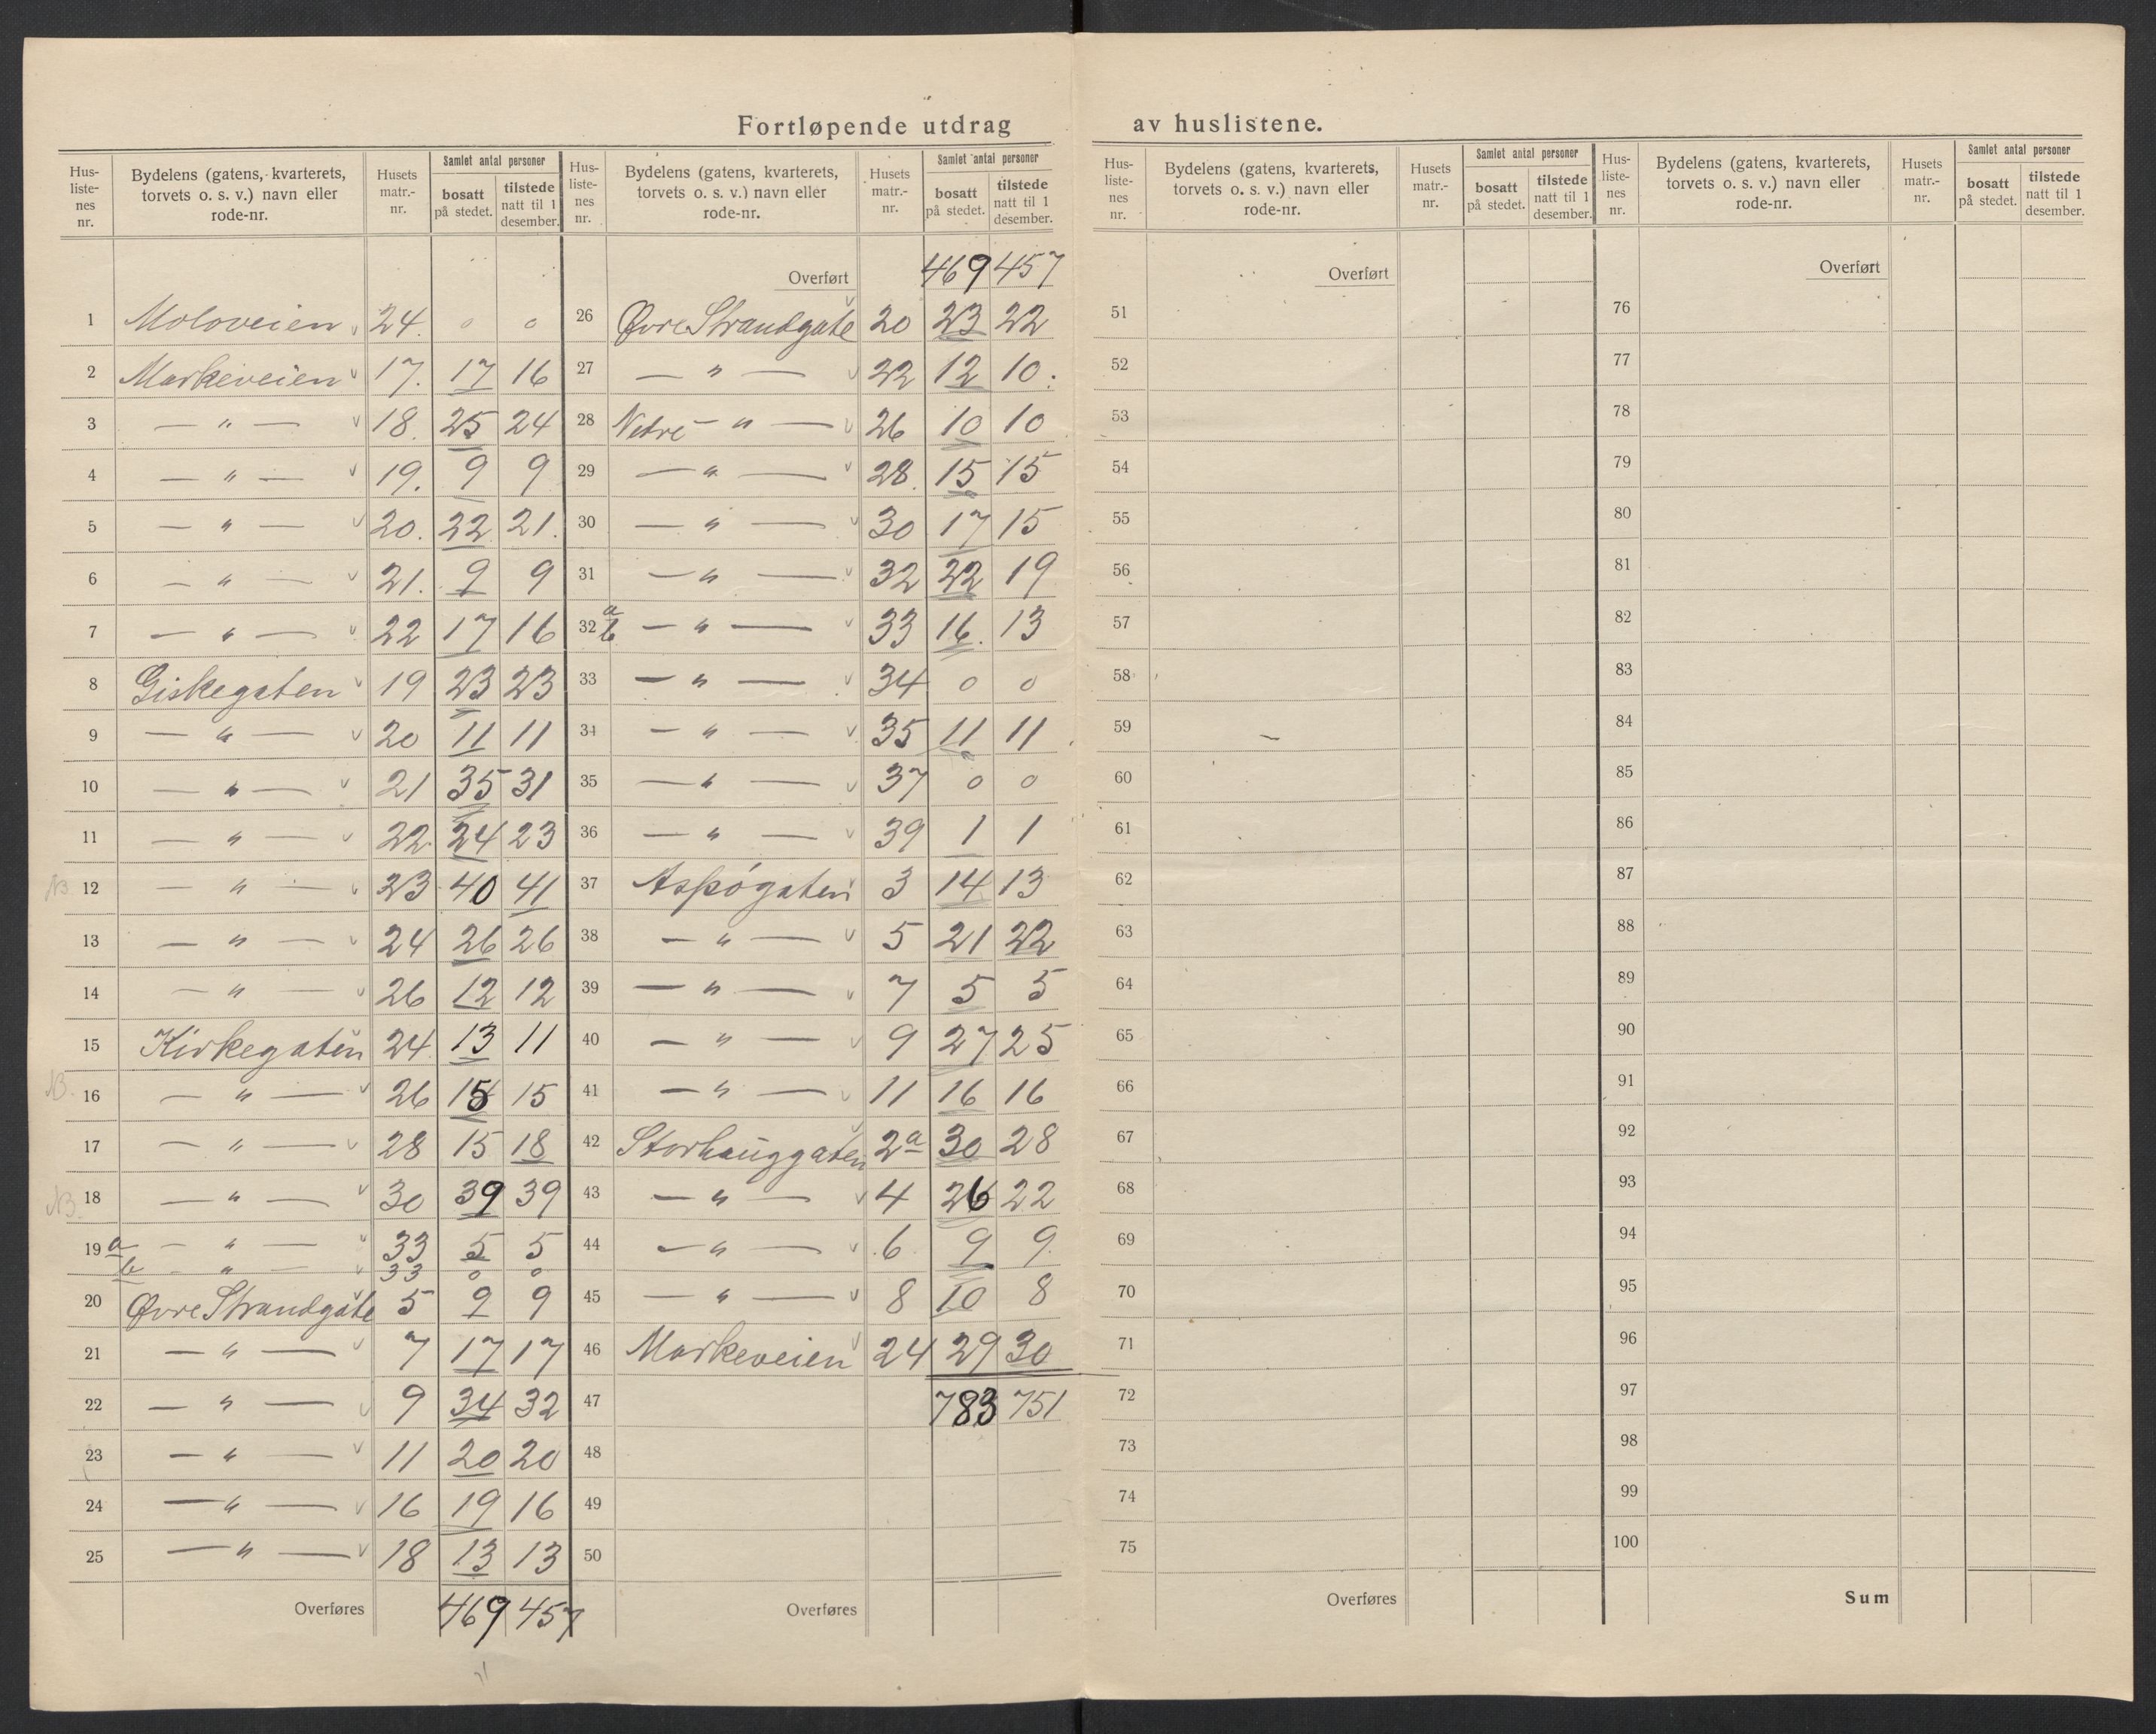 Fortløpende utdrag av huslistene.
Hus-listenes nr. | Bydelens (gatens, kvarterets, torvets o. s. v.) navn eller rode-nr. | Husets matr.-nr. | Samlet antal personer bosatt på stedet. | tilstede natt til 1 desember.
1 Moloveien 24. 0 0
2 Markeveien 17. 17 16
3 — " — 18. 25 24
4 — " — 19. 9 9
5 — " — 20. 22 21.
6 — " — 21. 9 9
7 — " — 22 17 16
8 Giskegaten 19 23 23
9 — " — 20 11 11
10 — " — 21 35 31
11 — " — 22 24 23
NB 12 — " — 23 40 41
13 — " — 24 26 26
14 — " — 26 12 12
15 Kirkegaten 24 13 11
NB. 16 — " — 26 18 15
17 — " — 28 15 18
NB. 18 — " — 30 39 39
19 a — " — 33 5 5
b — " — 33 0 0
20 Øvre Strandgate 5 9 9
21 — " — 7 17 17
22 — " — 9 34 32
23 — " — 11 20 20
24 — " — 16 19 16
25 — " — 18 13 13
Overføres 469 457
Hus-listenes nr. | Bydelens (gatens, kvarterets, torvets o. s. v.) navn eller rode-nr. | Husets matr.-nr. | Samlet antal personer bosatt på stedet. | tilstede natt til 1 desember.
Overført 469 457
26 Øvre Strandgate 20 23 22
27 — " — 22 12 10.
28 Nedre — " — 26 10 10
29 — " — 28. 15 15
30 — " — 30 17 15
31 — " — 32 22 19
32 a b — " — 33 16. 13
33 — " — 34 0 0
34 — " — 35 11 11
35 — " — 37 0 0
36 — " — 39 1 1
37 Aspøgaten 3 14 13
38 — " — 5 21 22
39 — " — 7 5 5
40 — " — 9 27 25
41 — " — 11 16 16
42 Storhauggaten 2a 30 28
43 — " — 4 26 22
44 — " — 6 9 9
45 — " — 8 10 8
46 Markeveien 24 29 30
47 783 751
48
49
50
Overføres
Hus-listenes nr. | Bydelens (gatens, kvarterets, torvets o. s. v.) navn eller rode-nr. | Husets matr.-nr. | Samlet antal personer bosatt på stedet. | tilstede natt til 1 desember.
Overført
51
52
53
54
55
56
57
58
59
60
61
62
63
64
65
66
67
68
69
70
71
72
73
74
75
Overføres
Hus-listenes nr. | Bydelens (gatens, kvarterets, torvets o. s. v.) navn eller rode-nr. | Husets matr.-nr. | Samlet antal personer bosatt på stedet. | tilstede natt til 1 desember.
Overført
76
77
78
79
80
81
82
83
84
85
86
87
88
89
90
91
92
93
94
95
96
97
98
99
100
Sum